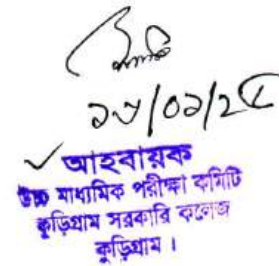 আহবায়ক
উচ্চ মাধ্যমিক পরীক্ষা কমিটি
কুড়িগ্রাম সরকারি কলেজ
কুড়িগ্রাম।